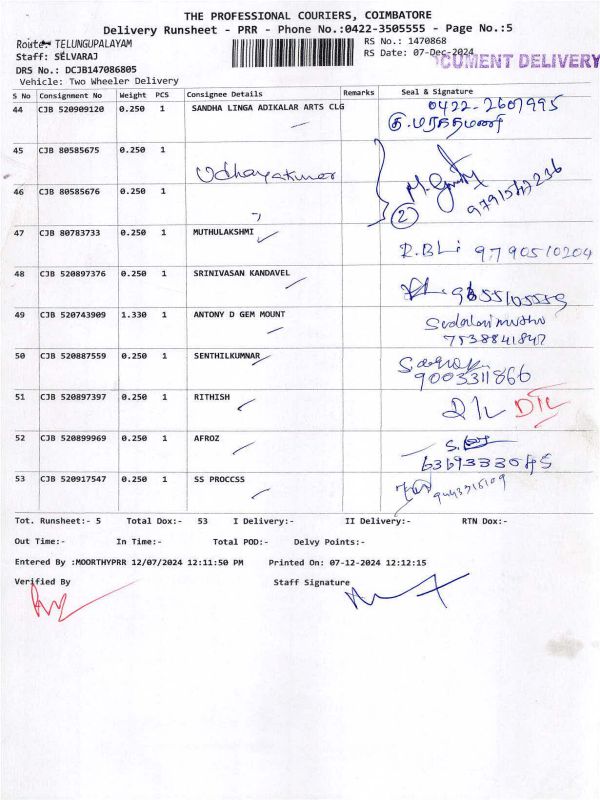 THE PROFESSIONAL COURIERS, COIMBATORE
Delivery Runsheet - PRR - Phone No.:0422-3505555 - Page No.:5
Route:- TELUNGUPALAYAM
RS No.: 1470868
Staff: SELVARAJ
RS Date: 07-Dec-2024
CUMENT DELIVERY
DRS No.: DCJB147086805
Vehicle: Two Wheeler Delivery
S No Consignment No Weight PCS Consignee Details Remarks Seal & Signature
44 CJB 520909120 0.250 1 SANDHA LINGA ADIKALAR ARTS CLG 0422-2607995
45 CJB 80585675 0.250 1
Udhayakumar
46 CJB 80585676 0.250 1
2
47 CJB 80783733 0.250 1 MUTHULAKSHMI 9790510204
48 CJB 520897376 0.250 1 SRINIVASAN KANDAVEL
49 CJB 520743909 1.330 1 ANTONY D GEM MOUNT
7538841847
50 CJB 520887559 0.250 1 SENTHILKUMNAR
9003311866
51 CJB 520897397 0.250 1 RITHISH
52 CJB 520899969 0.250 1 AFROZ
53 CJB 520917547 0.250 1 SS PROCCSS
Tot. Runsheet:- 5 Total Dox:- 53 I Delivery:- II Delivery:- RTN Dox:-
Out Time:- In Time:- Total POD:- Delvy Points:-
Entered By :MOORTHYPRR 12/07/2024 12:11:50 PM Printed On: 07-12-2024 12:12:15
Verified By Staff Signature